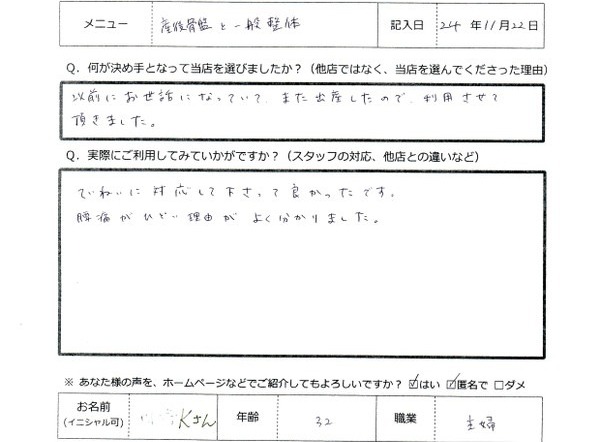 メニュー 産後骨盤と一般整体 記入日 24年11月22日
Q. 何が決め手となって当店を選びましたか？（他店ではなく、当店を選んでくださった理由）
以前にお世話になっていて、また出産したので、利用させて
頂きました。
Q. 実際にご利用してみていかがですか？（スタッフの対応、他店との違いなど）
ていねいに対応して下さって良かったです。
腰痛がひどい理由がよく分かりました。
※ あなた様の声を、ホームページなどでご紹介してもよろしいですか？ ☑はい ☑匿名で □ダメ
お名前
（イニシャル可） Kさん 年齢 32 職業 主婦